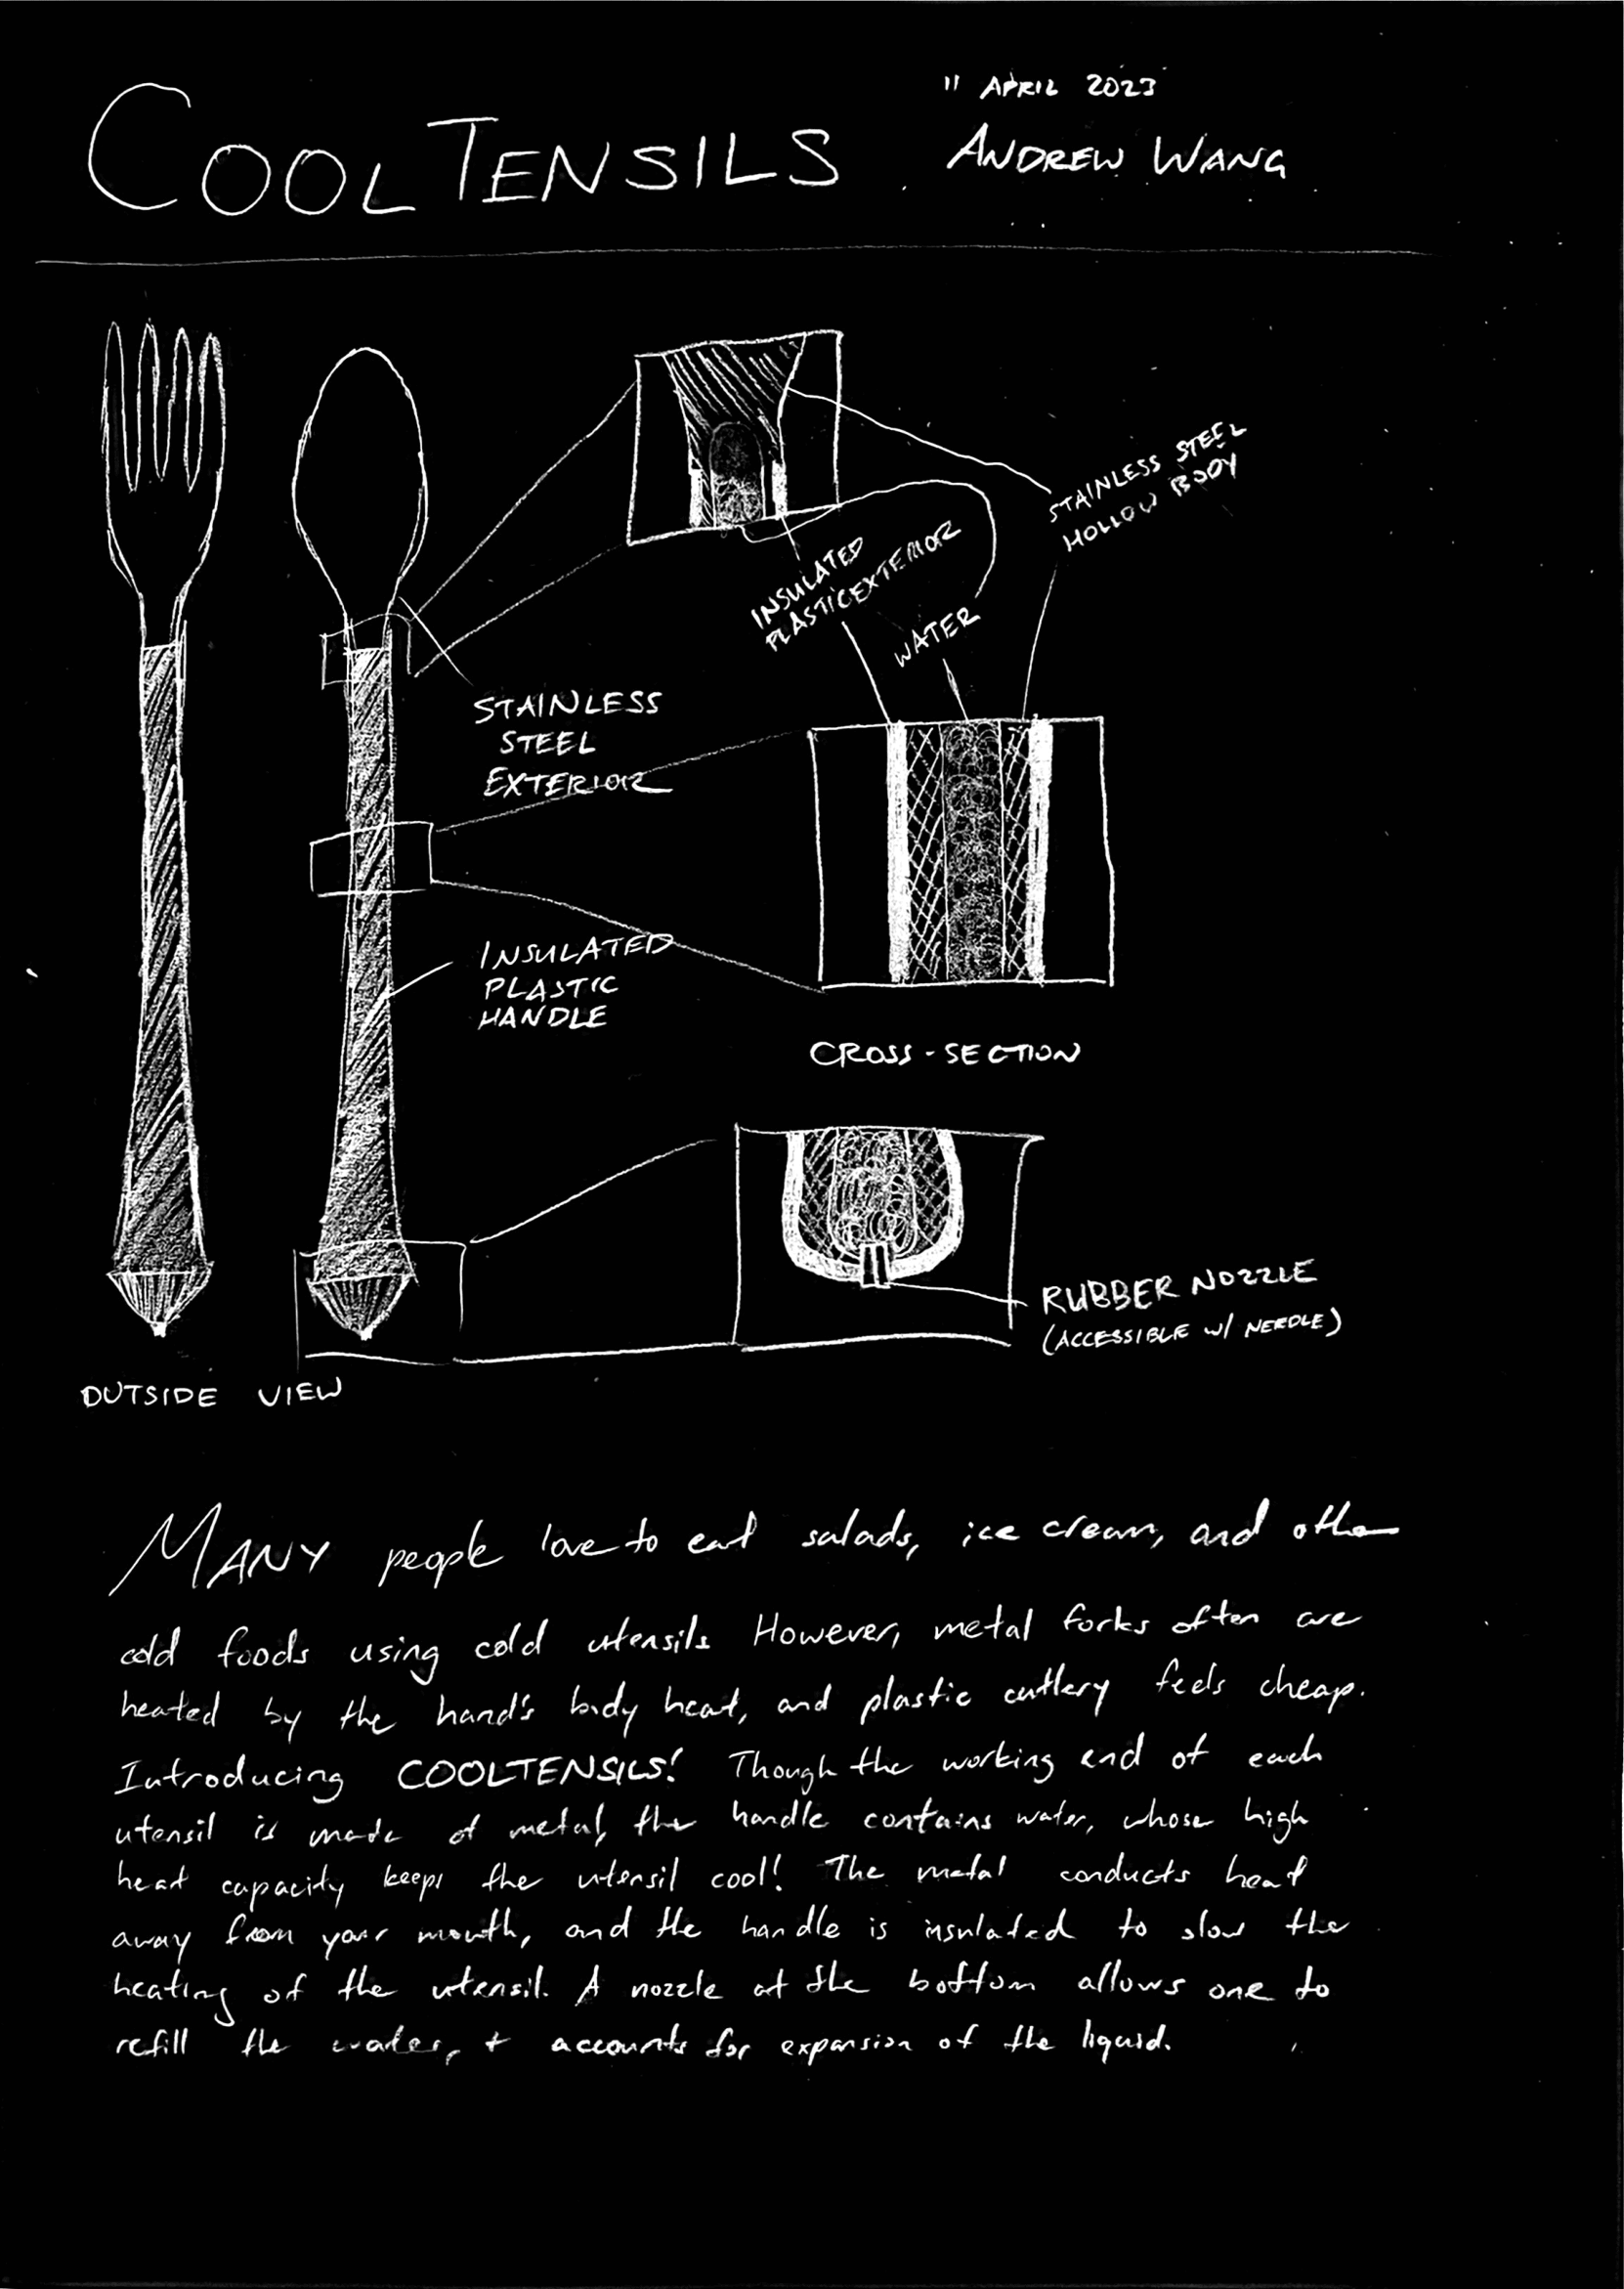 11 APRIL 2023
COOLTENSILS
ANDREW WANG
STAINLESS STEEL
HOLLOW BODY
INSULATED
PLASTIC EXTERIOR
WATER
STAINLESS
STEEL
EXTERIOR
INSULATED
PLASTIC
HANDLE
CROSS-SECTION
RUBBER NOZZLE
(ACCESSIBLE W/ NEEDLE)
OUTSIDE VIEW
MANY people love to eat salads, ice cream, and other
cold foods using cold utensils However, metal forks often are
heated by the hand's body heat, and plastic cutlery feels cheap.
Introducing COOLTENSILS! Though the working end of each
utensil is made of metal, the handle contains water, whose high
heat capacity keeps the utensil cool! The metal conducts heat
away from your mouth, and the handle is insulated to slow the
heating of the utensil. A nozzle at the bottom allows one to
refill the water, + accounts for expansion of the liquid.